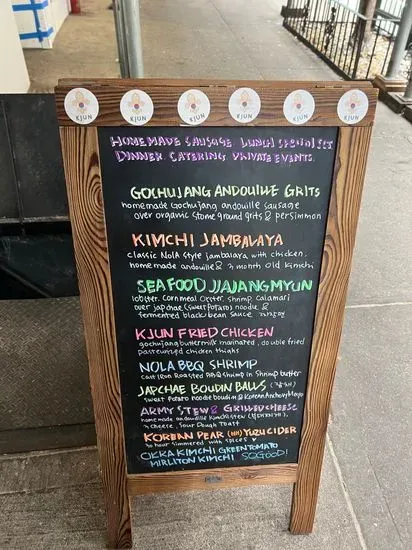 KJUN KJUN KJUN KJUN KJUN KJUN
HOMEMADE SAUSAGE LUNCH SPECIALS
DINNER CATERING PRIVATE EVENTS
GOCHUJANG ANDOUILLE GRITS
homemade Gochujang andouille sausage
over organic stone ground grits & persimmon
KIMCHI JAMBALAYA
classic NOLA style jambalaya with chicken,
homemade andouille & 2 month old kimchi
SEAFOOD JJAJANGMYUN
lobster, cornmeal oyster, shrimp calamari
over japchae (sweet potato) noodle &
fermented black bean sauce
KJUN FRIED CHICKEN
gochujang buttermilk marinated, double fried
pasture raised chicken thighs
NOLA BBQ SHRIMP
cast iron Roasted BBQ shrimp in shrimp butter
JAPCHAE BOUDIN BALLS
sweet potato noodle boudin & Korean Anchovy Mayo
ARMY STEW & GRILLED CHEESE
homemade andouille kimchi stew
cheese, sour Dough Toast
KOREAN PEAR YUZU CIDER
hour simmered with spices
OKRA KIMCHI GREEN TOMATO
MIRLITON KIMCHI SO GOOD!